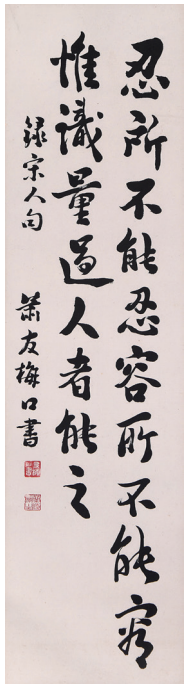 忍所不能忍容所不能容
惟識量過人者能之
錄宋人句
蕭友梅口書